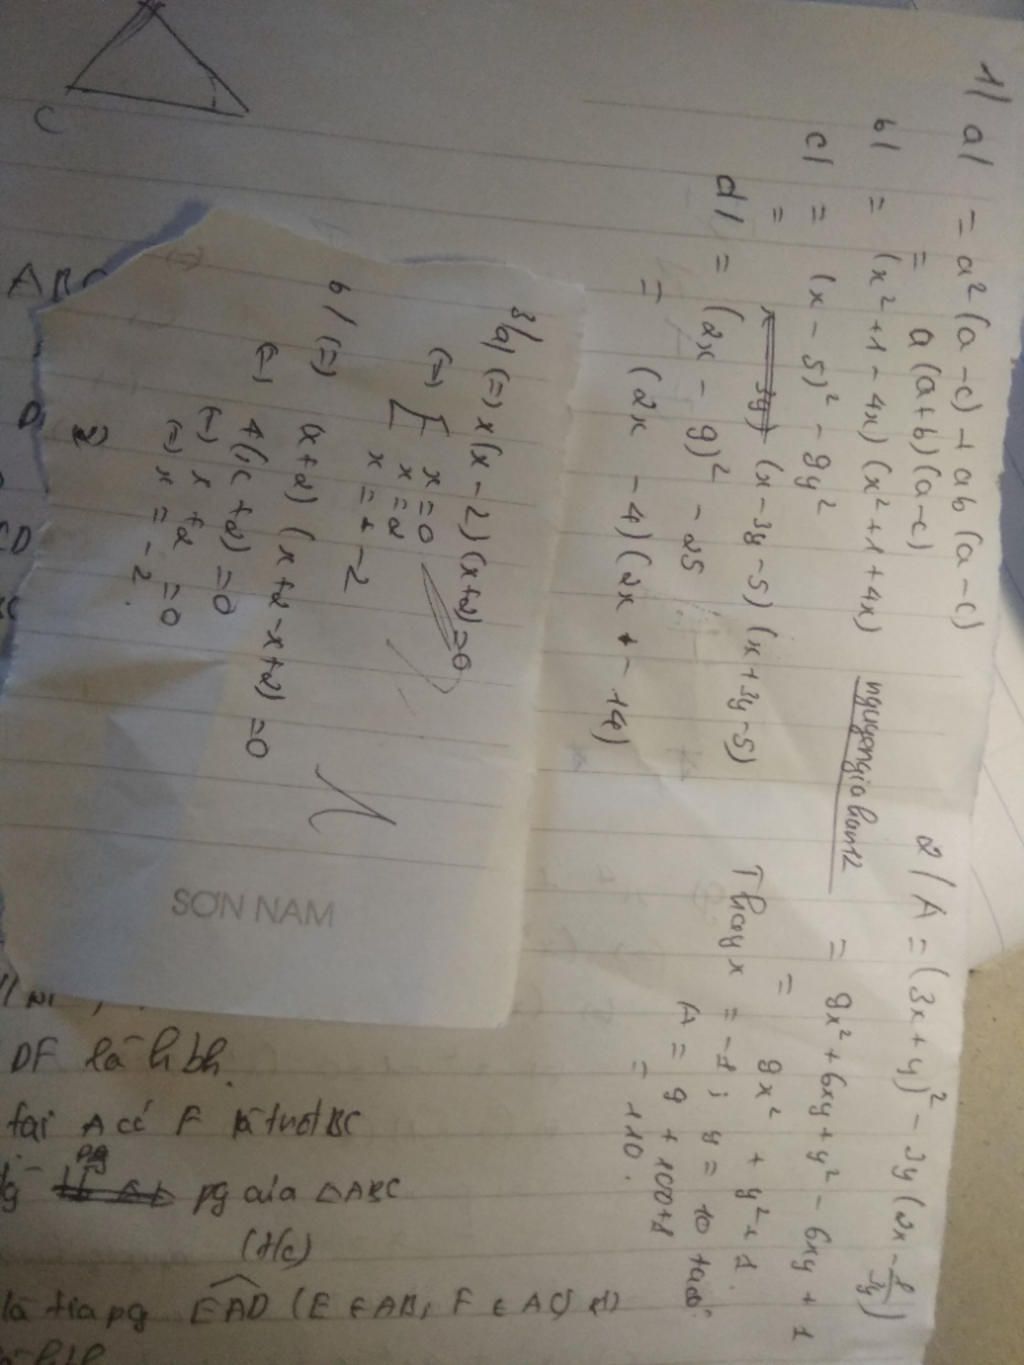 1/ a/ = a² (a - c) + ab (a - c)
= a (a+b) (a-c)
b/ = (x² + 1 - 4x) (x² + 1 + 4x)
c/ = (x - 5)² - 9y²
= (x - 3y - 5) (x + 3y - 5)
d/ = (2x - 9)² - 25
= (2x - 4) (2x + - 14)
nguyengiahan12
2/ A = (3x + y)² - 3y (2x - 1/3y)
= 9x² + 6xy + y² - 6xy + 1
= 9x² + y² + 1.
Thay x = -1 ; y = 10 ta có:
A = 9 + 100 + 1
= 110.
3/ a/ (=) x (x - 2) (x + 2) = 0
(=) [ x = 0
x = 2
x = + - 2
b/ (=) (x + 2) (x + 2 - x + 2) = 0
(=) 4 (x + 2) = 0
(=) x + 2 = 0
(=) x = -2.
SƠN NAM
C
ABC
D
CD
DF là hbh.
tại A có F là trđ BC
pg của △ABC
(t/c)
là tia pg EAD (E ∈ AB, F ∈ AC)